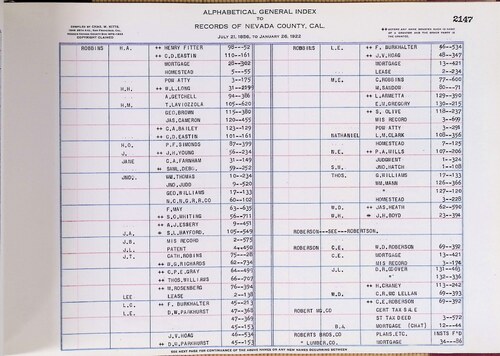 ALPHABETICAL GENERAL INDEX
TO
RECORDS OF NEVADA COUNTY, CAL.
JULY 21, 1856, TO JANUARY 26, 1922
COPYRIGHT CLAIMED
2147
ROBBINS H.A. ++ HENRY FITTER 90---52
++ C.D.EASTIN 110---161
MORTGAGE 28---302
HOMESTEAD 5---55
POW ATTY 3---175
H.H. ++ W.L.LONG 31---219
A.GETCHELL 94---386
H.M. T.LAVIOZZOLA 105---620
GEO.BROWN 115---380
JAS.CAMERON 120---455
++ C.A.BAILEY 123---129
++ C.D.EASTIN 181---161
H.O. P.F.SIMONDS 87---399
J. ++ J.H.YOUNG 56---234
JANE C.A.FARNHAM 31---149
++ SAML.DEBO. 59---252
JNO. WM.THOMAS 10---234
JNO.JUDD 9---520
GEO.WILLIAMS 17---133
N.C.R.G.R.R.CO 60---102
F.MAY 63---635
++ S.O.WHITING 56---711
++ A.J.ESBERY 9---451
++ S.L.HAYFORD. 105---549
J.B. MIS RECORD 2---575
J.L. PATENT 4---450
J.T. CATH.ROBINS 75---28
++ W.G.RICHARDS 62---734
++ C.P.E.GRAY 64---495
++ THOS.WILLIAMS 66---707
++ M.ROSENBERG 76---394
LEE LEASE 2---138
L.C. ++ F. BURKHALTER 45---213
L.E. D.W.PARKHURST 47---368
47---369
45---153
J.V.HOAG 46---534
++ D.W.PARKHURST 45---153
ROBBINS L.E. ++ F. BURKHALTER 46---534
++ J.V.HOAG 48---347
MORTGAGE 13---421
LEASE 2---234
M.E. C.ROBBINS 77---600
M.SANDOW 80---71
++ L.ARMETTA 129---390
E.M.GREGORY 130---215
++ S.OLIVE 118---237
MIS RECORD 3---699
POW ATTY 3---291
NATHANIEL L.M.CLARK 108---356
HOMESTEAD 7---125
N.E. ++ P.A.MILLS 107---206
JUDGMENT 1---324
S.H. JNO.HATCH 1---108
THOS. G.WILLIAMS 17---133
WM.MANN 126---366
" 127---120
HOMESTEAD 3---228
W.D. ++ JAS.HEATH 62---590
W.H. ++ J.H.BOYD 23---394
ROBERSON---SEE---ROBERTSON.
ROBERSON C.E. W.D.ROBERSON 69---392
C.E. MORTGAGE 13---421
MIS RECORD 3---174
J.L. 131---463
132---336
++ H.CRANEY 113---242
W.D. C.R.MC LELLAN 69---393
++ C.E.ROBERSON 69---392
ROBERT MG.CO CERT TAX SALE
ST TAX DEED 3---572
B.A. MORTGAGE (CHAT) 12---44
ROBERTS BROS.CO PLANS,ETC. INSTS F'D
" LUMBER,CO. MORTGAGE 34---86
SEE NEXT PAGE FOR CONTINUANCE OF THE ABOVE NAMES OR ANY NEW NAMES RECORDED BETWEEN